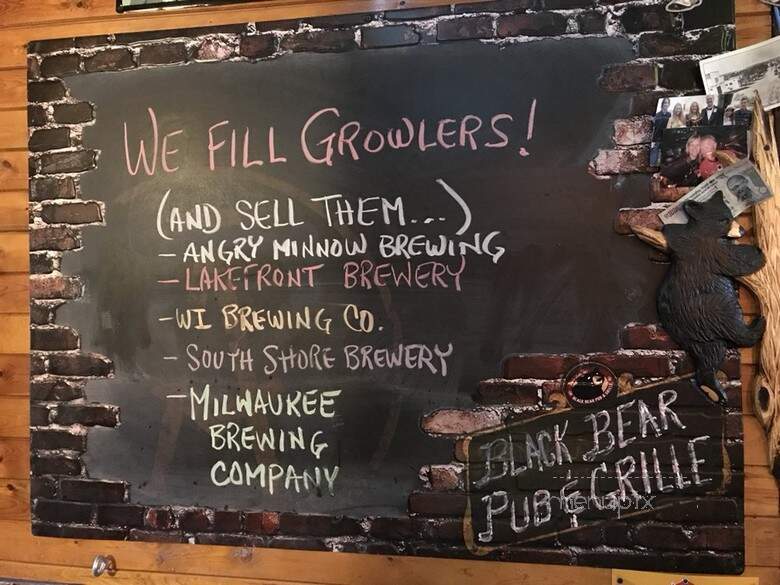 WE FILL GROWLERS!
(AND SELL THEM...)
- ANGRY MINNOW BREWING
- LAKEFRONT BREWERY
- WI BREWING CO.
- SOUTH SHORE BREWERY
- MILWAUKEE
BREWING
COMPANY
BLACK BEAR
PUB & GRILLE
menupix